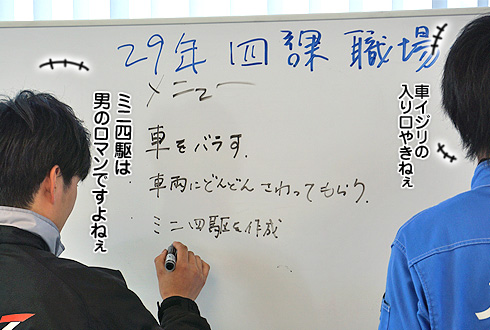 29年 四課 職場
メニュー
・車をバラす.
・車両にどんどんさわってもらう.
・ミニ四駆を作成
車イジリの
入り口やきねぇ
ミニ四駆は
男のロマンですよねぇ